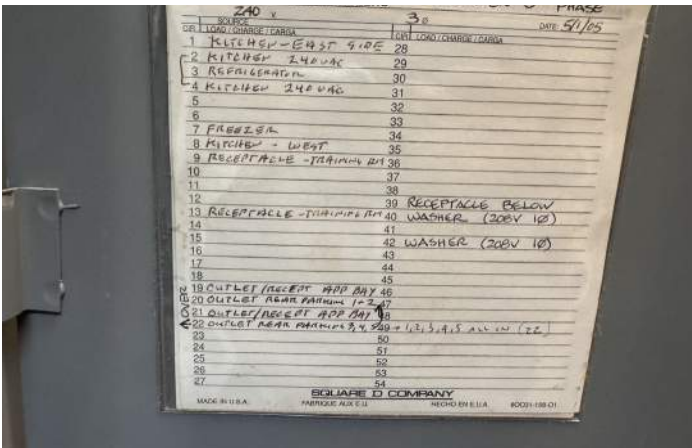 240 V 3 Ø PHASE
SOURCE DATE 5/1/05
CIR LOAD / CHARGE / CARGA CIR LOAD / CHARGE / CARGA
1 KITCHEN - EAST SIDE 28
2 KITCHEN 240 VAC 29
3 REFRIGERATOR 30
4 KITCHEN 240 VAC 31
5 32
6 33
7 FREEZER 34
8 KITCHEN - WEST 35
9 RECEPTACLE - TRAINING RM 36
10 37
11 38
12 39 RECEPTACLE BELOW
13 RECEPTACLE - TRAINING RM 40 WASHER (208V 1Ø)
14 41
15 42 WASHER (208V 1Ø)
16 43
17 44
18 45
19 OUTLET/RECEPT APP BAY 46
20 OUTLET REAR PARKING 1+2 47
21 OUTLET/RECEPT APP BAY 48
22 OUTLET REAR PARKING 3, 4, 5 49 + 1, 2, 3, 4, 5 ALL IN (22)
OVER
23 50
24 51
25 52
26 53
27 54
SQUARE D COMPANY
MADE IN U.S.A. FABRIQUE AUX E.U. HECHO EN E.U.A.